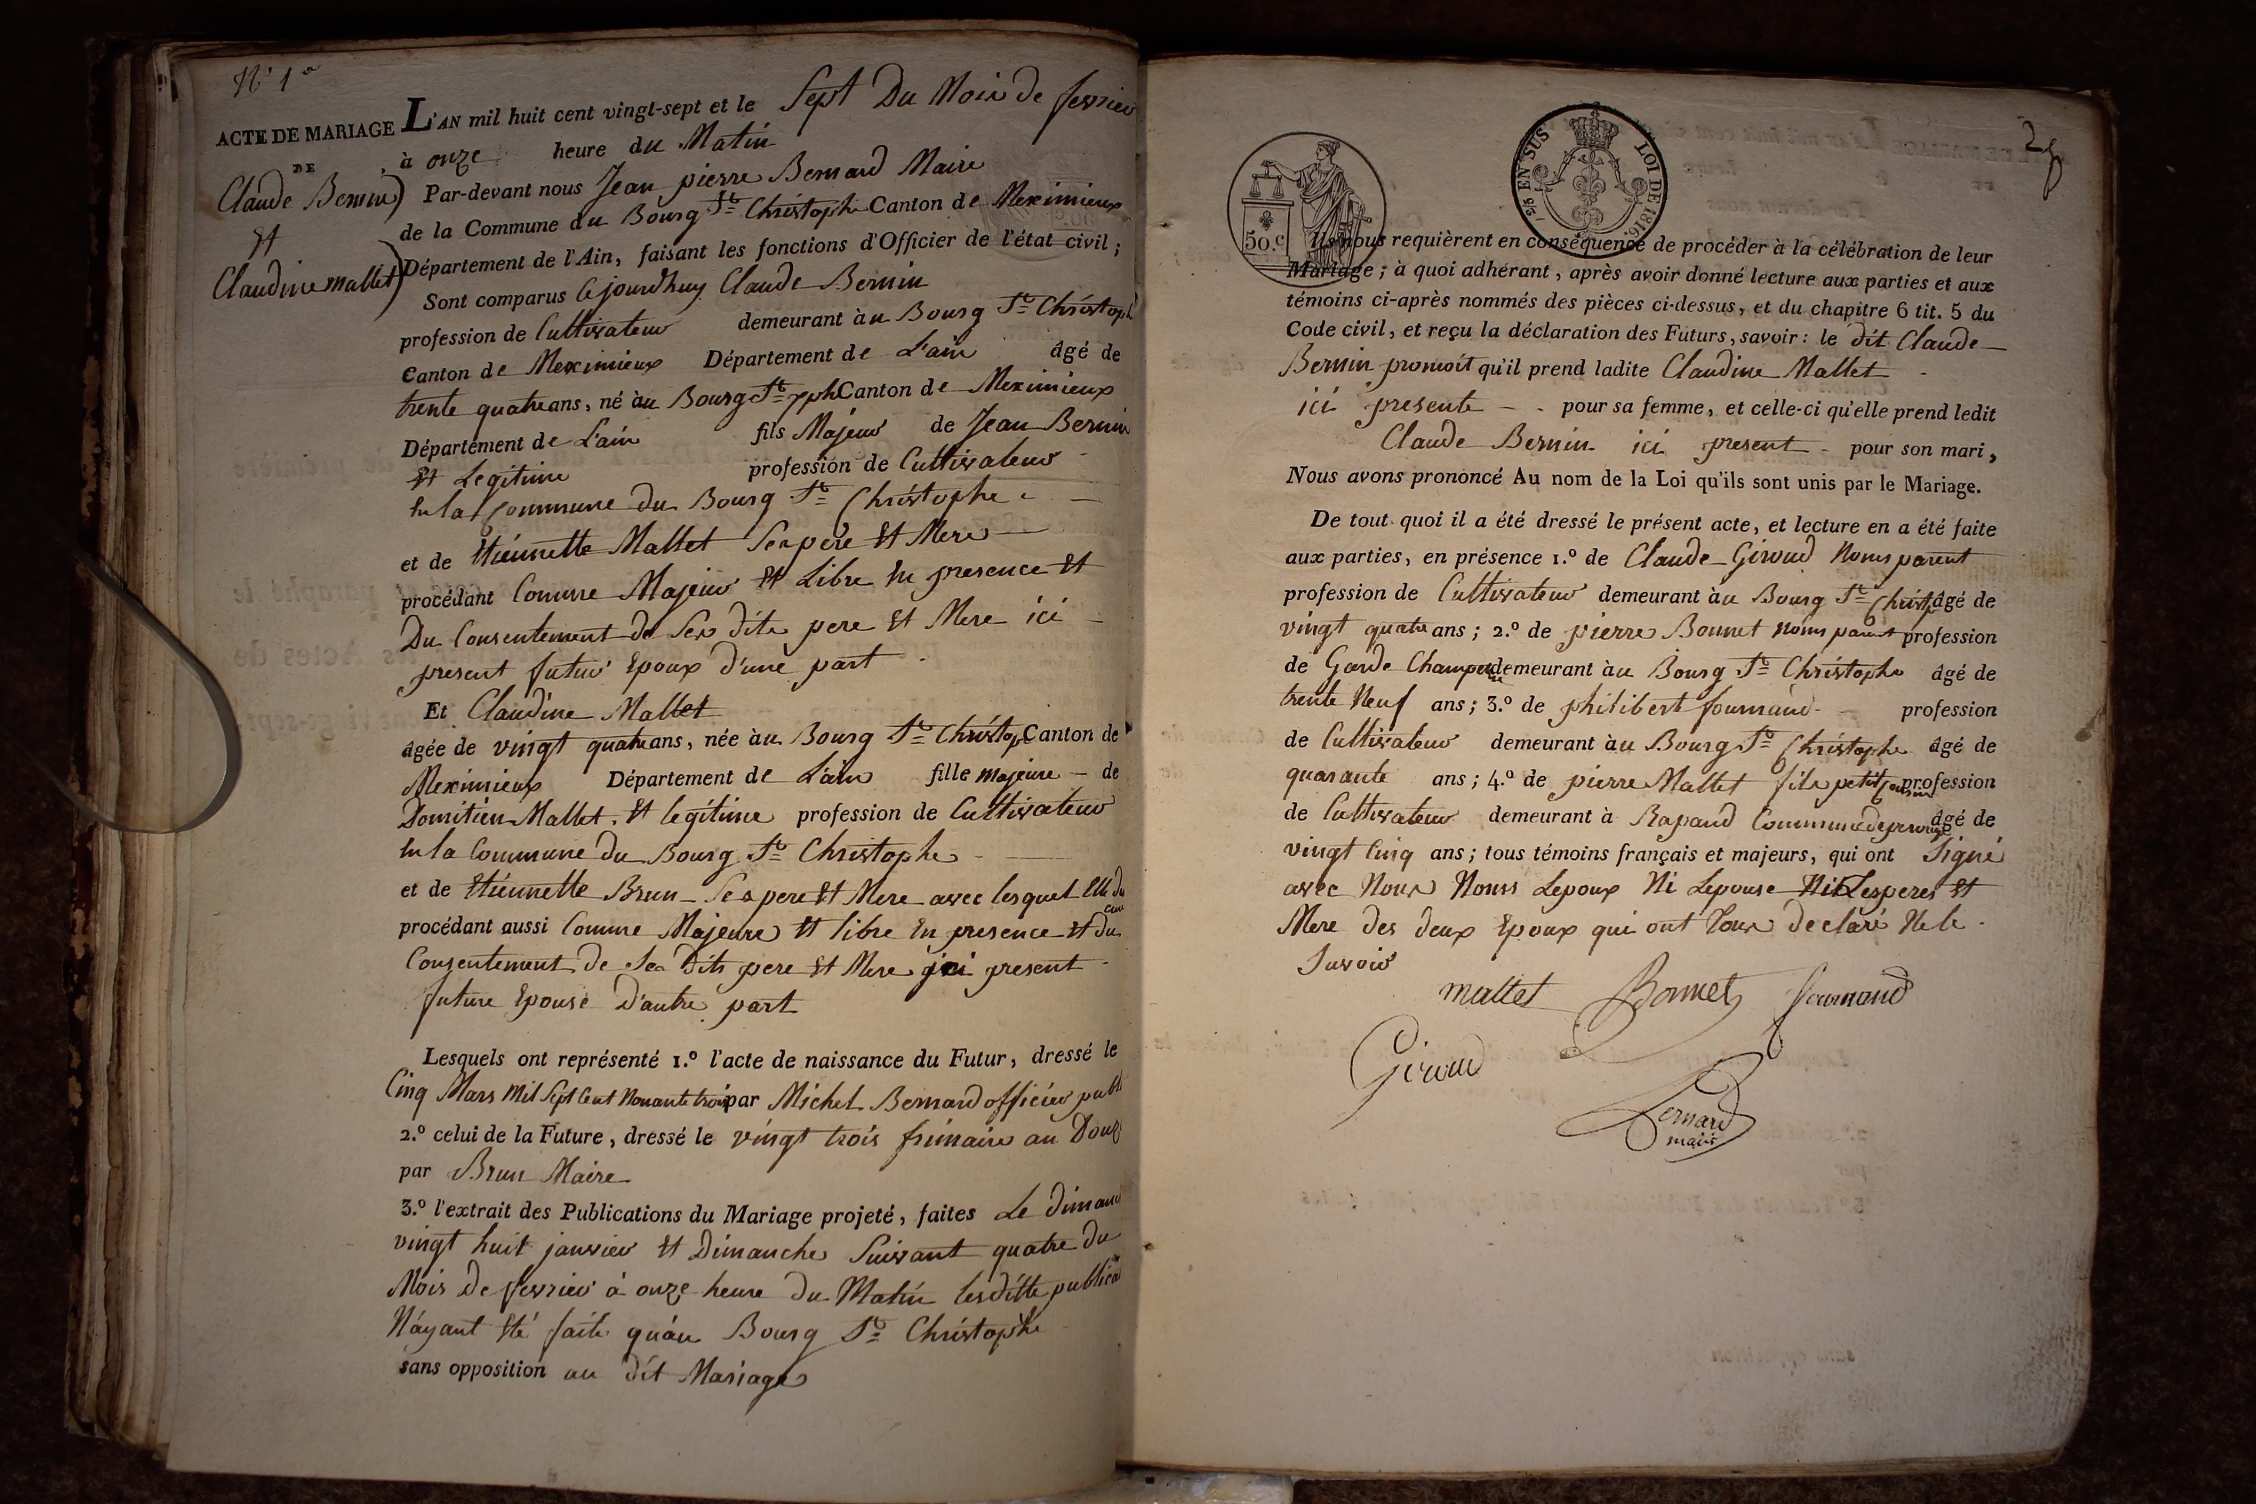 N° 1er
ACTE DE MARIAGE
DE
Claude Bernin
Et
Claudine mallet
L'AN mil huit cent vingt-sept et le Sept Du Mois de fevrier
à onze heure du Matin
Par-devant nous Jean pierre Bernard Maire
de la Commune du Bourg St Christophe Canton de Meximieux
Département de l'Ain, faisant les fonctions d'Officier de l'état civil ;
Sont comparus Cejourdhuy Claude Bernin
profession de Cultivateur demeurant àu Bourg St Christoph
Canton de Meximieux Département de L'ain âgé de
trente quatre ans, né àu Bourg St xph Canton de Meximieux
Département de L'ain fils Majeur de Jean Bernin
Et Legitime profession de Cultivateur
En la Commune du Bourg St Christophe
et de Etiennette Mallet Ses pere Et Mere
procédant Comme Majeur Et Libre En presence Et
Du Consentement de Ses dits pere Et Mere ici
present futur Epoux d'une part
Et Claudine Mallet
âgée de vingt quatre ans, née àu Bourg St Christop Canton de
Meximieux Département de L'ain fille majeure de
Domitien Mallet Et legitime profession de Cultivateur
En la Commune du Bourg St Christophe
et de Etiennette Brun Ses pere Et Mere avec lesquel Elle du
procédant aussi Comme Majeure Et libre En presence Et du
Consentement de Ses Dits pere Et Mere ici present
future Epouse D'autre part
Lesquels ont représenté 1.º l'acte de naissance du Futur, dressé le
Cinq Mars Mil Sept Cent Nonante trois par Michel Bernard officier publi
2.º celui de la Future, dressé le vingt trois frimaire an Douz
par Brun Maire
3.º l'extrait des Publications du Mariage projeté, faites Le dimanc
vingt huit janvier Et Dimanche Suivant quatre du
Mois de fevrier à onze heure du Matin lesditte publica
N'ayant Eté faite qu'au Bourg St Christophe
sans opposition au dit Mariage
28
EN SUS LOI DE 1816.
50.c
Ils nous requièrent en conséquence de procéder à la célébration de leur
Mariage ; à quoi adhérant, après avoir donné lecture aux parties et aux
témoins ci-après nommés des pièces ci-dessus, et du chapitre 6 tit. 5 du
Code civil, et reçu la déclaration des Futurs, savoir : le dit Claude
Bernin promoit qu'il prend ladite Claudine Mallet
ici presente pour sa femme, et celle-ci qu'elle prend ledit
Claude Bernin ici present pour son mari,
Nous avons prononcé Au nom de la Loi qu'ils sont unis par le Mariage.
De tout quoi il a été dressé le présent acte, et lecture en a été faite
aux parties, en présence 1.º de Claude Giroud Nons parent
profession de Cultivateur demeurant àu Bourg St Christop âgé de
vingt quatre ans ; 2.º de pierre Bonnet Nons parent profession
de Garde Champetre demeurant àu Bourg St Christophe âgé de
trente Neuf ans ; 3.º de philibert fournand profession
de Cultivateur demeurant àu Bourg St Christophe âgé de
quarante ans ; 4.º de pierre Mallet fils petit Cousin profession
de Cultivateur demeurant à Rapand Commune de perouge âgé de
vingt Cinq ans ; tous témoins français et majeurs, qui ont Signé
avec Nous Nons Lepoux Ni Lepouse Ni Les peres Et
Mere des deux Epoux qui ont Tous declaré Ne le
Savoir
mallet Bonnet fournand
Giroud
Bernard
maire